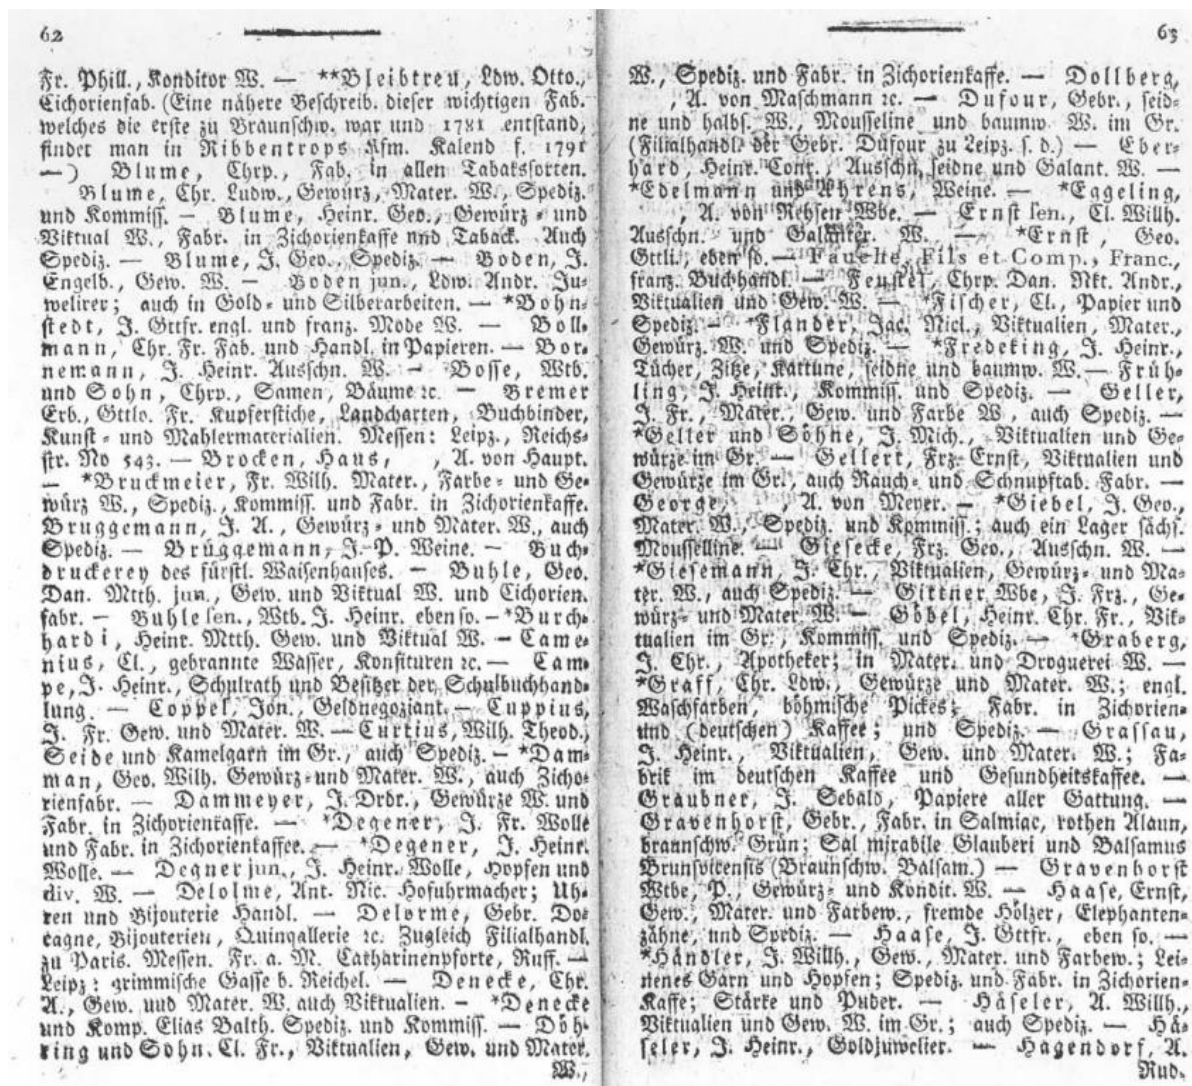 62
Fr. Phill., Konditor W. — **Bleibtreu, Ldw. Otto.,
Cichorienfab. (Eine nähere Beschreib. dieser wichtigen Fab.
welches die erste zu Braunschw. war und 1781 entstand,
findet man in Ribbentrops Kfm. Kalend f. 1791
—) Blume, Chrp., Fab. in allen Tabakssorten.
Blume, Chr. Ludw., Gewürz, Mater. W., Spediz.
und Kommiss. — Blume, Heinr. Geo., Gewürz- und
Viktual W., Fabr. in Zichorienkaffe nnd Taback. Auch
Spediz. — Blume, J. Geo., Spediz. — Boden, J.
Engelb., Gew. W. — Boden jun., Ldw. Andr. Ju-
welirer; auch in Gold- und Silberarbeiten. — *Bohn-
stedt, J. Gttfr. engl. und franz. Mode W. — Boll-
mann, Chr. Fr. Fab. und Handl. in Papieren. — Bor-
nemann, J. Heinr. Ausschn. W. — Bosse, Wtb.
und Sohn, Chrp., Samen, Bäume ꝛc. — Bremer
Erb., Gttlo. Fr. Kupferstiche, Landcharten, Buchbinder,
Kunst- und Mahlermaterialien. Messen: Leipz., Reichs-
str. No 543. — Brocken, Haus, , A. von Haupt.
— *Bruckmeier, Fr. Wilh. Mater., Farbe- und Ge-
würz W., Spediz., Kommiss. und Fabr. in Zichorienkaffe.
Bruggemann, J. A., Gewürz- und Mater. W., auch
Spediz. — Brüggemann, J. P. Weine. — Buch-
druckerey des fürstl. Waisenhauses. — Buhle, Geo.
Dan. Mtth. jun., Gew. und Viktual W. und Cichorien.
fabr. — Buhle sen., Wtb. J. Heinr. eben so. — *Burch-
hardi, Heinr. Mtth. Gew. und Viktual W. — Came-
nius, Cl., gebrannte Wasser, Konfituren ꝛc. — Cam-
pe, J. Heinr., Schulrath und Besitzer der Schulbuchhand-
lung. — Coppel, Jon., Geldnegoziant. — Cuppius,
J. Fr. Gew. und Mater. W. — Curtius, Wilh. Theod.,
Seide und Kamelgarn im Gr., auch Spediz. — *Dam-
man, Geo. Wilh. Gewürz- und Mater. W., auch Zicho-
rienfabr. — Dammeyer, J. Drdr., Gewürze W. und
Fabr. in Zichorienkaffe. — *Degener, J. Fr. Wolle
und Fabr. in Zichorienkaffee. — *Degener, J. Heinr.
Wolle. — Degner jun., J. Heinr. Wolle, Hopfen und
div. W. — Delolme, Ant. Nic. Hofuhrmacher; Uh-
ren und Bijouterie Handl. — Delorme, Gebr. Do-
cagne, Bijouterien, Quinqallerie ꝛc. Zugleich Filialhandl.
zu Paris. Messen. Fr. a. M. Catharinenpforte, Ruff. —
Leipz: grimmische Gasse b. Reichel. — Denecke, Chr.
A., Gew. uud Mater. W. auch Viktualien. — *Denecke
und Komp. Elias Balth. Spediz. und Kommiss. — Döh-
ring und Sohn. Cl. Fr., Viktualien, Gew. und Mater.
W.,
63
W., Spediz. und Fabr. in Zichorienkaffe. — Dollberg,
, A. von Maschmann ꝛc. — Dufour, Gebr., seid-
ne und halbs. W., Mousseline und baumw. W. im Gr.
(Filialhandl. der Gebr. Düfour zu Leipz. s. d.) — Eber-
hard, Heinr. Conr., Ausschn. seidne und Galant. W. —
*Edelmann und Ahrens, Weine. — *Eggeling,
, A. von Rehsen Wbe. — Ernst sen., Cl. Willh.
Ausschn. und Galanter. W. — *Ernst, Geo.
Gttli., eben so. — Fauche, Fils et Comp., Franc.,
franz. Buchhandl. — Feustel, Chrp. Dan. Nkt. Andr.,
Viktualien und Gew. W. — *Fischer, Cl., Papier und
Spediz. — *Flander, Jac. Nicl., Viktualien, Mater.,
Gewürz. W. und Spediz. — *Fredeking, J. Heinr.,
Tücher, Zitze, Kattune, seidne und baumw. W. — Früh-
ling, J. Heinr., Kommiss. und Spediz. — Geller,
J. Fr., Mater., Gew. und Farbe W, auch Spediz. —
*Geller und Söhne, J. Mich., Viktualien und Ge-
würze im Gr. — Gellert, Frz. Ernst, Viktualien und
Gewürze im Gr., auch Rauch- und Schnupftab. Fabr. —
George, , A. von Meyer. — *Giebel, J. Geo.,
Mater. W., Spediz. und Kommiss.; auch ein Lager sächs.
Mousselline. — Giesecke, Frz. Geo., Ausschn. W. —
*Giesemann, J. Chr., Viktualien, Gewürz- und Ma-
ter. W., auch Spediz. — Gittner Wbe, J. Frz., Ge-
würz- und Mater. W. — Göbel, Heinr. Chr. Fr., Vik-
tualien im Gr., Kommiss. und Spediz. — *Graberg,
J. Chr., Apotheker; in Mater. und Droguerei W. —
*Graff, Chr. Ldw., Gewürze und Mater. W.; engl.
Waschfarben, böhmische Pickes; Fabr. in Zichorien-
und (deutschen) Kaffee; und Spediz. — Grassau,
J. Heinr., Viktualien, Gew. und Mater. W.; Fa-
brik im deutschen Kaffee und Gesundheitskaffee. —
Graubner, J. Sebald, Papiere aller Gattung. —
Gravenhorst, Gebr., Fabr. in Salmiac, rothen Alaun,
brannschw. Grün; Sal mirabile Glauberi und Balsamus
Brunsvicensis (Braunschw. Balsam.) — Gravenhorst
Wtbe, P., Gewürz- und Kondit. W. — Haase, Ernst,
Gew., Mater. und Farbew., fremde Hölzer, Elephanten-
zähne, und Spediz. — Haase, J. Gttfr., eben so. —
*Händler, J. Willh., Gew., Mater. und Farbew.; Lei-
nenes Garn und Hopfen; Spediz. und Fabr. in Zichorien-
Kaffe; Stärke und Puder. — Häseler, A. Willh.,
Viktualien und Gew. W. im Gr.; auch Spediz. — Hä-
seler, J. Heinr., Goldjuwelier. — Hagendorf, A.
Rud.